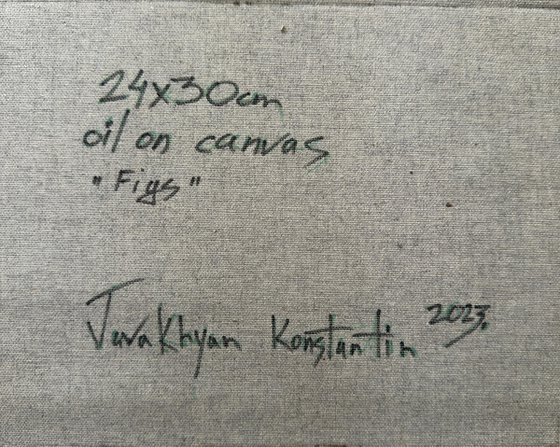 24x30cm
oil on canvas
"Figs"
Juvakhyan Konstantin 2023.